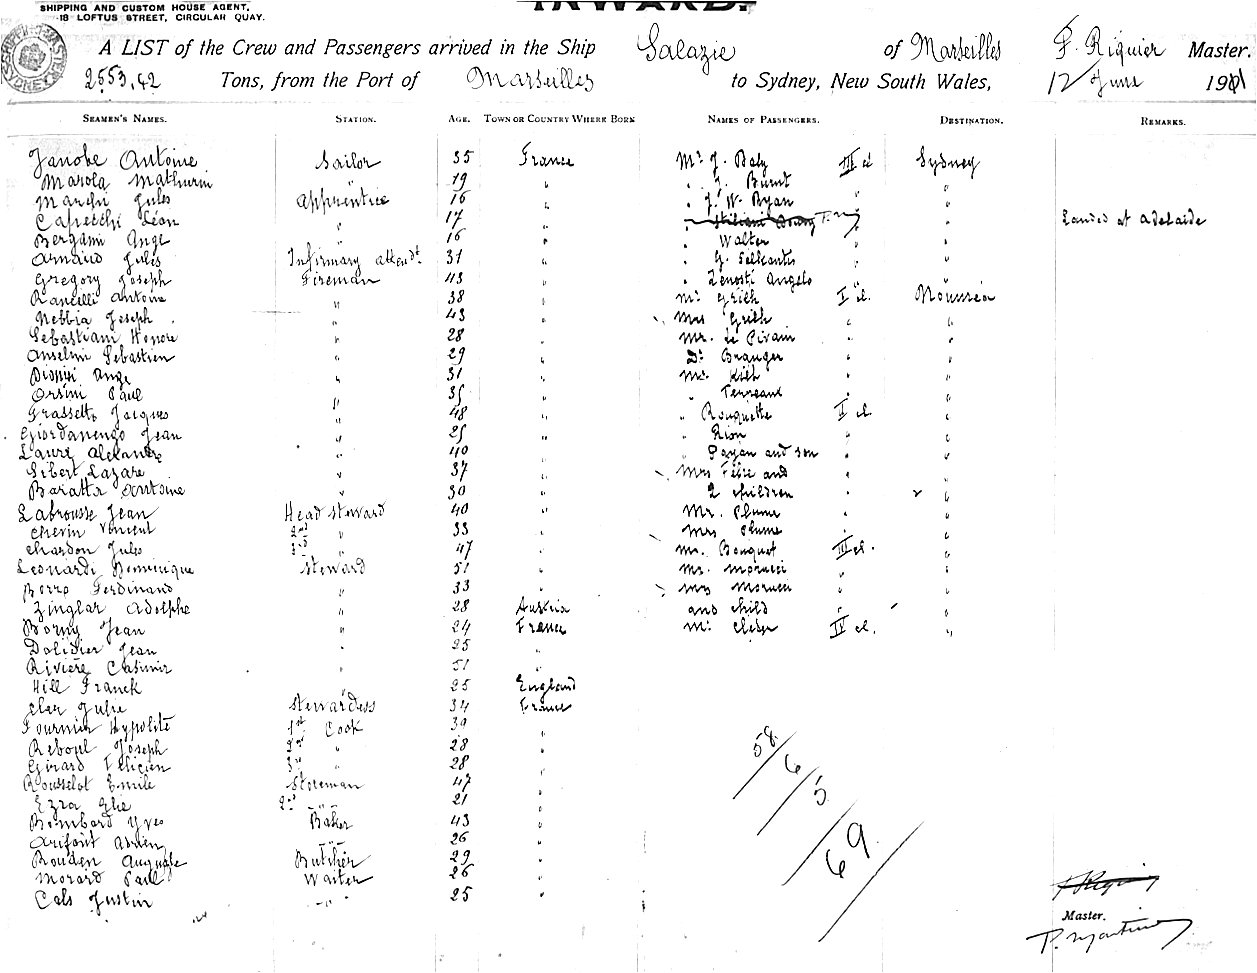 SHIPPING AND CUSTOM HOUSE AGENT,
18 LOFTUS STREET, CIRCULAR QUAY.
INWARD.
A LIST of the Crew and Passengers arrived in the Ship Salazie of Marseilles F. Riquier Master.
2553,42 Tons, from the Port of Marseilles to Sydney, New South Wales, 12 June 1901
SEAMEN'S NAMES. STATION. AGE. TOWN OR COUNTRY WHERE BORN NAMES OF PASSENGERS. DESTINATION. REMARKS.
Janobe Antoine Sailor 35 France Mr J. Baly III cl Sydney
Marola Mathurin " 19 " " J. Burnt " "
Marchi Jules Apprentice 16 " " J. W. Ryan " "
Capecchi Léon " 17 " " Landed at Adelaide
Bergami Ange " 16 " " Walter " "
Arnaud Jules Infirmary attendt 31 " " G. "
Gregory Joseph Fireman 43 " " Angelo "
Rancelli Antoine " 38 " Mr Grieh I cl. Nouméa
Nebbia Joseph " 43 " Mrs Grieh " "
Sebastiani Honoré " 28 " Mr. Le " "
Anselmi Sebastien " 29 " Dr Branger " "
Dionisi Ange " 31 " Mr. " "
Orsini Paul " 35 " " Terreaux " "
Grassetto Jacques " 48 " " Rouquette II cl "
Giordanengo Jean " 25 " " Rion " "
Laure Alexandre " 40 " " Payan and son " "
Gibert Lazare " 37 " Mrs Félix and " "
Baratta Antoine " 30 " 2 children " "
Labrousse Jean Head steward 40 " Mr. Plume " "
Chevin Vincent 2nd " 33 " Mrs Plume " "
Chardon Jules " 47 " Mr. Bouquet III cl. "
Leonardi Dominique Steward 51 " Mr. Morucci " "
Borro Ferdinand " 33 " Mrs Morucci " "
Zinglar Adolphe " 28 Austria and child " "
Borny Jean " 24 France Mr IV cl. "
Dolidier Jean " 25 "
Rivière Casimir " 51 "
Hill Franck " 25 England
Clar Julie Stewardess 34 France
Fournier Hypolite 1st Cook 39 "
Reboul Joseph 2nd " 28 "
Girard Félicien 3rd " 28 "
Rousselot Emile Storeman 47 "
Ezra Elie 2nd " 21 "
Bombard Yves Baker 43 "
Adrien " 26 "
Rouden Auguste Butcher 29 "
Morard Paul Waiter 26 "
Cals Justin " 25 "
58/
6/
5
69
Master.
P. Martin